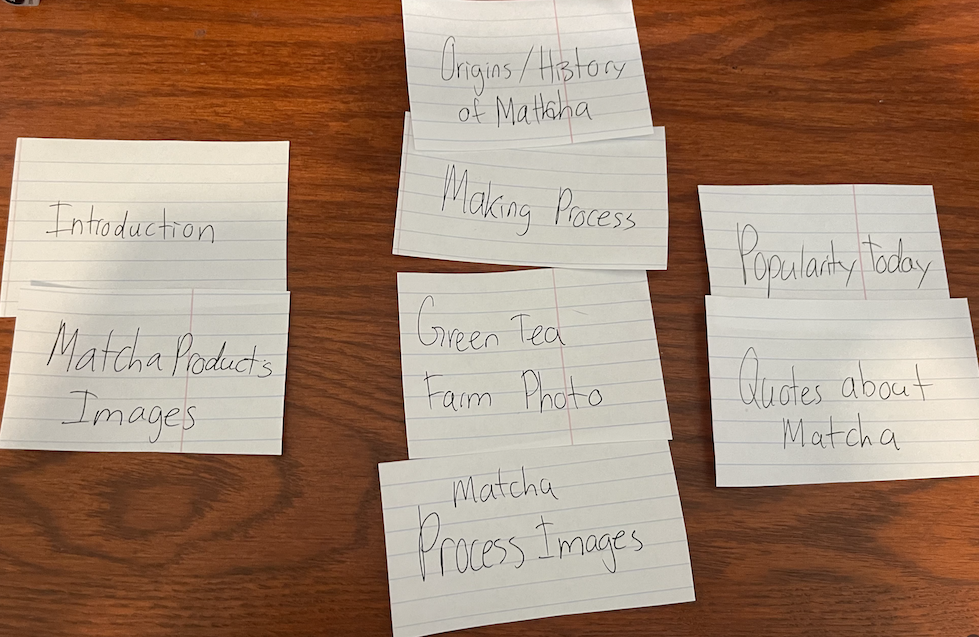 Introduction
Matcha Products
Images
Origins/History
of Matcha
Making Process
Green Tea
Farm Photo
Matcha
Process Images
Popularity Today
Quotes about
Matcha